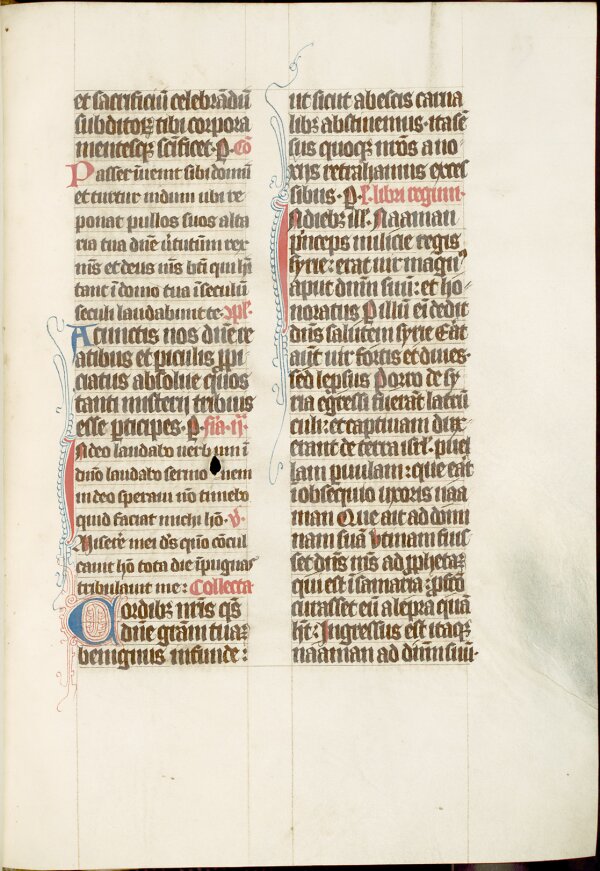 et sacrificiū celebrādū
subditoꝝ tibi corpora
mentesqꝫ scīficet · P · Cō
Passer īuenit sibi domū
et turtur nidum ubi re
ponat pullos suos alta
ria tua dn̄e v̓tutum rex
m̄s et deus m̄s bt̄i qui hī
tant ī domo tua ī seculū
seculi laudabunt te · 9pl̄ ·
A cunctis nos dn̄e re
atibus et piculis ꝓpi
ciatus absolue quos
tanti misterii tribuis
esse pticipes · P · fīa · ii ·
In deo laudabo uerbum ī
dn̄o laudabo sermonem
in deo speraui nō timebo
quid faciat michi hō · V ·
Misere mei ds̄ qm̄o cōcul
cauit hō tota die īpugnās
tribulauit me : Collecta
Cordibꝫ nr̄is qs̄
dn̄e grām tuaꝫ
benignus infunde :
ut sicut ab escis carna
libꝫ abstinemus · ita sē
sus quoqꝫ nr̄os a no
xijs retrahamus exces
sibus · P · l̄ · libri regum ·
In diebꝫ ill̄ · Naaman
p̄nceps milicie regis
syrie : erat uir magn9
aput dn̄m suū : et ho
noratus Per illū em̄ dedit
dn̄s salutem syrie Erat
aut̄ uir fortis et diues ·
sed lepsus Porro de sy
ria egressi fuerāt latrū
culi : et captiuam dux
erant de terra isrl̄ · puel
lam puulam : que erāt
ī obsequio uxoris naa
man Que ait ad domi
nam suā Vtinam fuis
set dn̄s m̄s ad ꝓphetaꝫ
qui est ī samaria : ꝓfcō
curasset eū a lepra quā
h̄t : Ingressus est itaqꝫ
naaman ad dn̄m suū ·